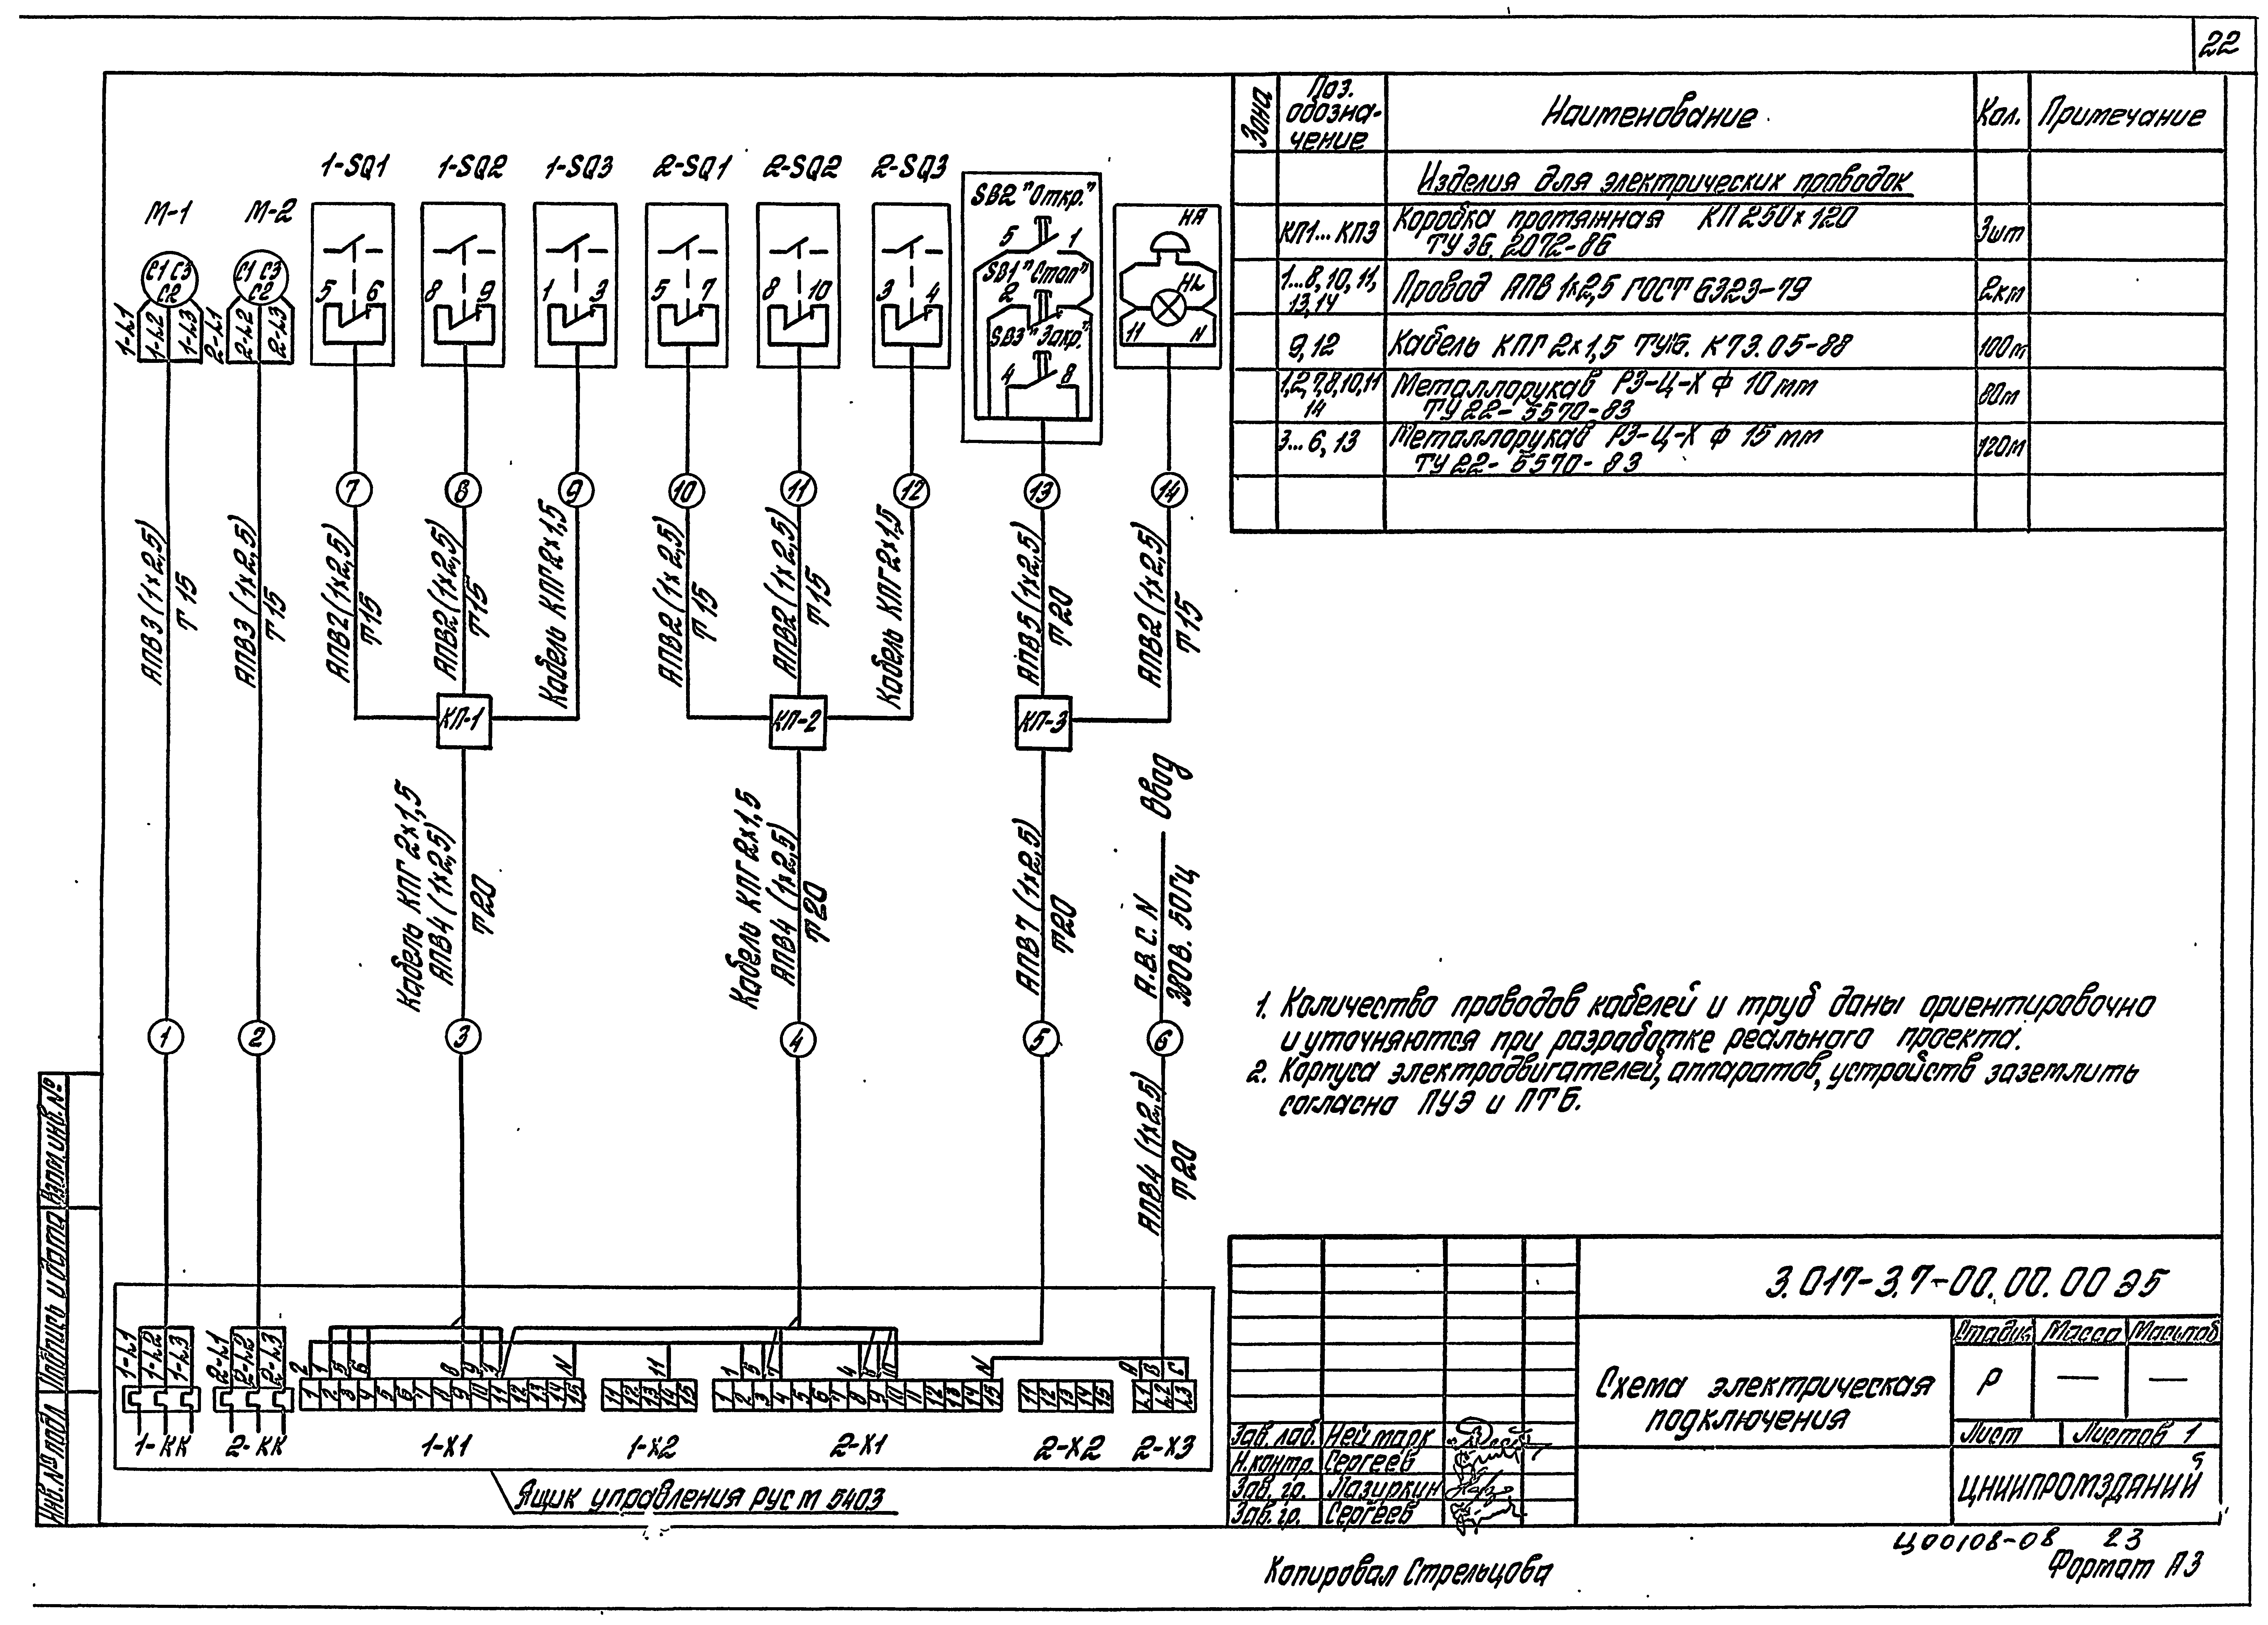 22
Зона
Поз. обозна-чение
Наименование
Кол.
Примечание
Изделия для электрических проводок
КП1...КП3
Коробка протяжная КП 250×120
ТУ 36. 2072-86
3шт
1...8, 10, 11,
13, 14
Провод АПВ 1×2,5 ГОСТ 6323-79
2км
9, 12
Кабель КПГ 2×1,5 ТУ16. К73.05-88
100м
1,2,7,8,10,11
14
Металлорукав РЗ-Ц-Х Ф 10мм
ТУ 22-5570-83
80м
3...6, 13
Металлорукав РЗ-Ц-Х Ф 15 мм
ТУ 22-5570-83
120м
М-1
М-2
1-SQ1
1-SQ2
1-SQ3
2-SQ1
2-SQ2
2-SQ3
С1 С3
С2
С1 С3
С2
1-Л1
1-Л2
1-Л3
2-Л1
2-Л2
2-Л3
5 6
8 9
1 3
5 7
8 10
3 4
SB2 "Откр."
5 1
SB1 "Стоп"
2
SB3 "Закр."
4 8
НА
HL
11 N
7
8
9
10
11
12
13
14
АПВ3 (1×2,5)
Т 15
АПВ3 (1×2,5)
Т 15
АПВ2 (1×2,5)
Т15
АПВ2 (1×2,5)
Т15
Кабель КПГ 2×1,5
АПВ2 (1×2,5)
Т 15
АПВ2 (1×2,5)
Т 15
Кабель КПГ 2×1,5
АПВ5 (1×2,5)
Т 20
АПВ2 (1×2,5)
Т 15
КП-1
КП-2
КП-3
Кабель КПГ 2×1,5
АПВ4 (1×2,5)
Т 20
Кабель КПГ 2×1,5
АПВ4 (1×2,5)
Т 20
АПВ7 (1×2,5)
Т20
Ввод
А.В.С. N
380В. 50Гц
1
2
3
4
5
6
АПВ4 (1×2,5)
Т 20
1. Количество проводов кабелей и труб даны ориентировочно
и уточняются при разработке реального проекта.
2. Корпуса электродвигателей, аппаратов, устройств заземлить
согласно ПУЭ и ПТБ.
1-Л1
1-Л2
1-Л3
2-Л1
2-Л2
2-Л3
2 1 5 6 8 9 N
11
1 5 4 N
А В С
1 2 3 4 5 6 7 8 9 10 11 12 13 14 15
11 12 13 14 15
1 2 3 4 5 6 7 8 9 10 11 12 13 14 15
11 12 13 14 15
L1 L2 L3
1-КК
2-КК
1-Х1
1-Х2
2-Х1
2-Х2
2-Х3
Ящик управления РУСМ 5403
3.017-3.7-00.00.00 Э5
Схема электрическая
подключения
Стадия
Масса
Масштаб
Р
—
—
Лист
Листов 1
ЦНИИПРОМЗДАНИЙ
Зав. лаб. Неймарк
Н.контр. Сергеев
Зав. гр. Лазиркин
Зав. гр. Сергеев
Взам. инв. №
Подпись и дата
Инв. № подл
Ц00108-08 23
Копировал Стрельцова
Формат А3